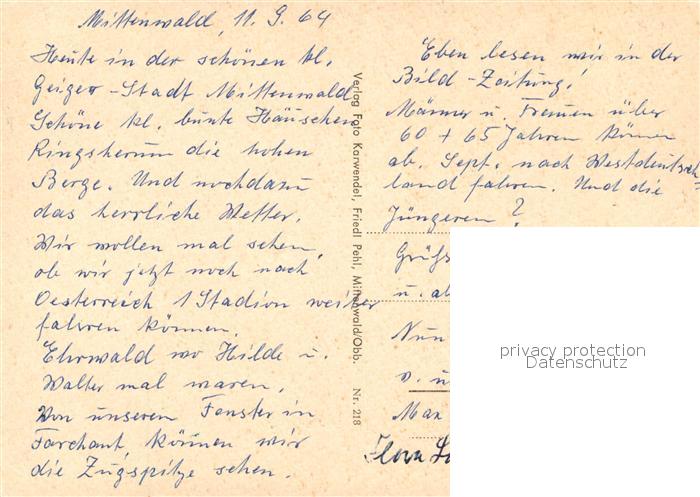 Mittenwald, 11. 9. 64
Heute in der schönen kl.
Geiger-Stadt Mittenwald
Schöne kl. bunte Häuschen
Ringsherum die hohen
Berge. Und noch dazu
das herrliche Wetter.
Wir wollen mal sehen,
ob wir jetzt noch nach
Oesterreich 1 Stadion weiter
fahren können.
Ehrwald wo Hilde u.
Walter mal waren.
Von unseren Fenster in
Farchant, können wir
die Zugspitze sehen.
Verlag Foto Karwendel, Friedl Pehl, Mittenwald/Obb. Nr. 218
Eben lesen wir in der
Bild-Zeitung!
Männer u. Frauen über
60 + 65 Jahren können
ab. Sept. nach Westdeutsch
land fahren. Und die
Jüngeren?
u.
Nun
Max
privacy protection
Datenschutz